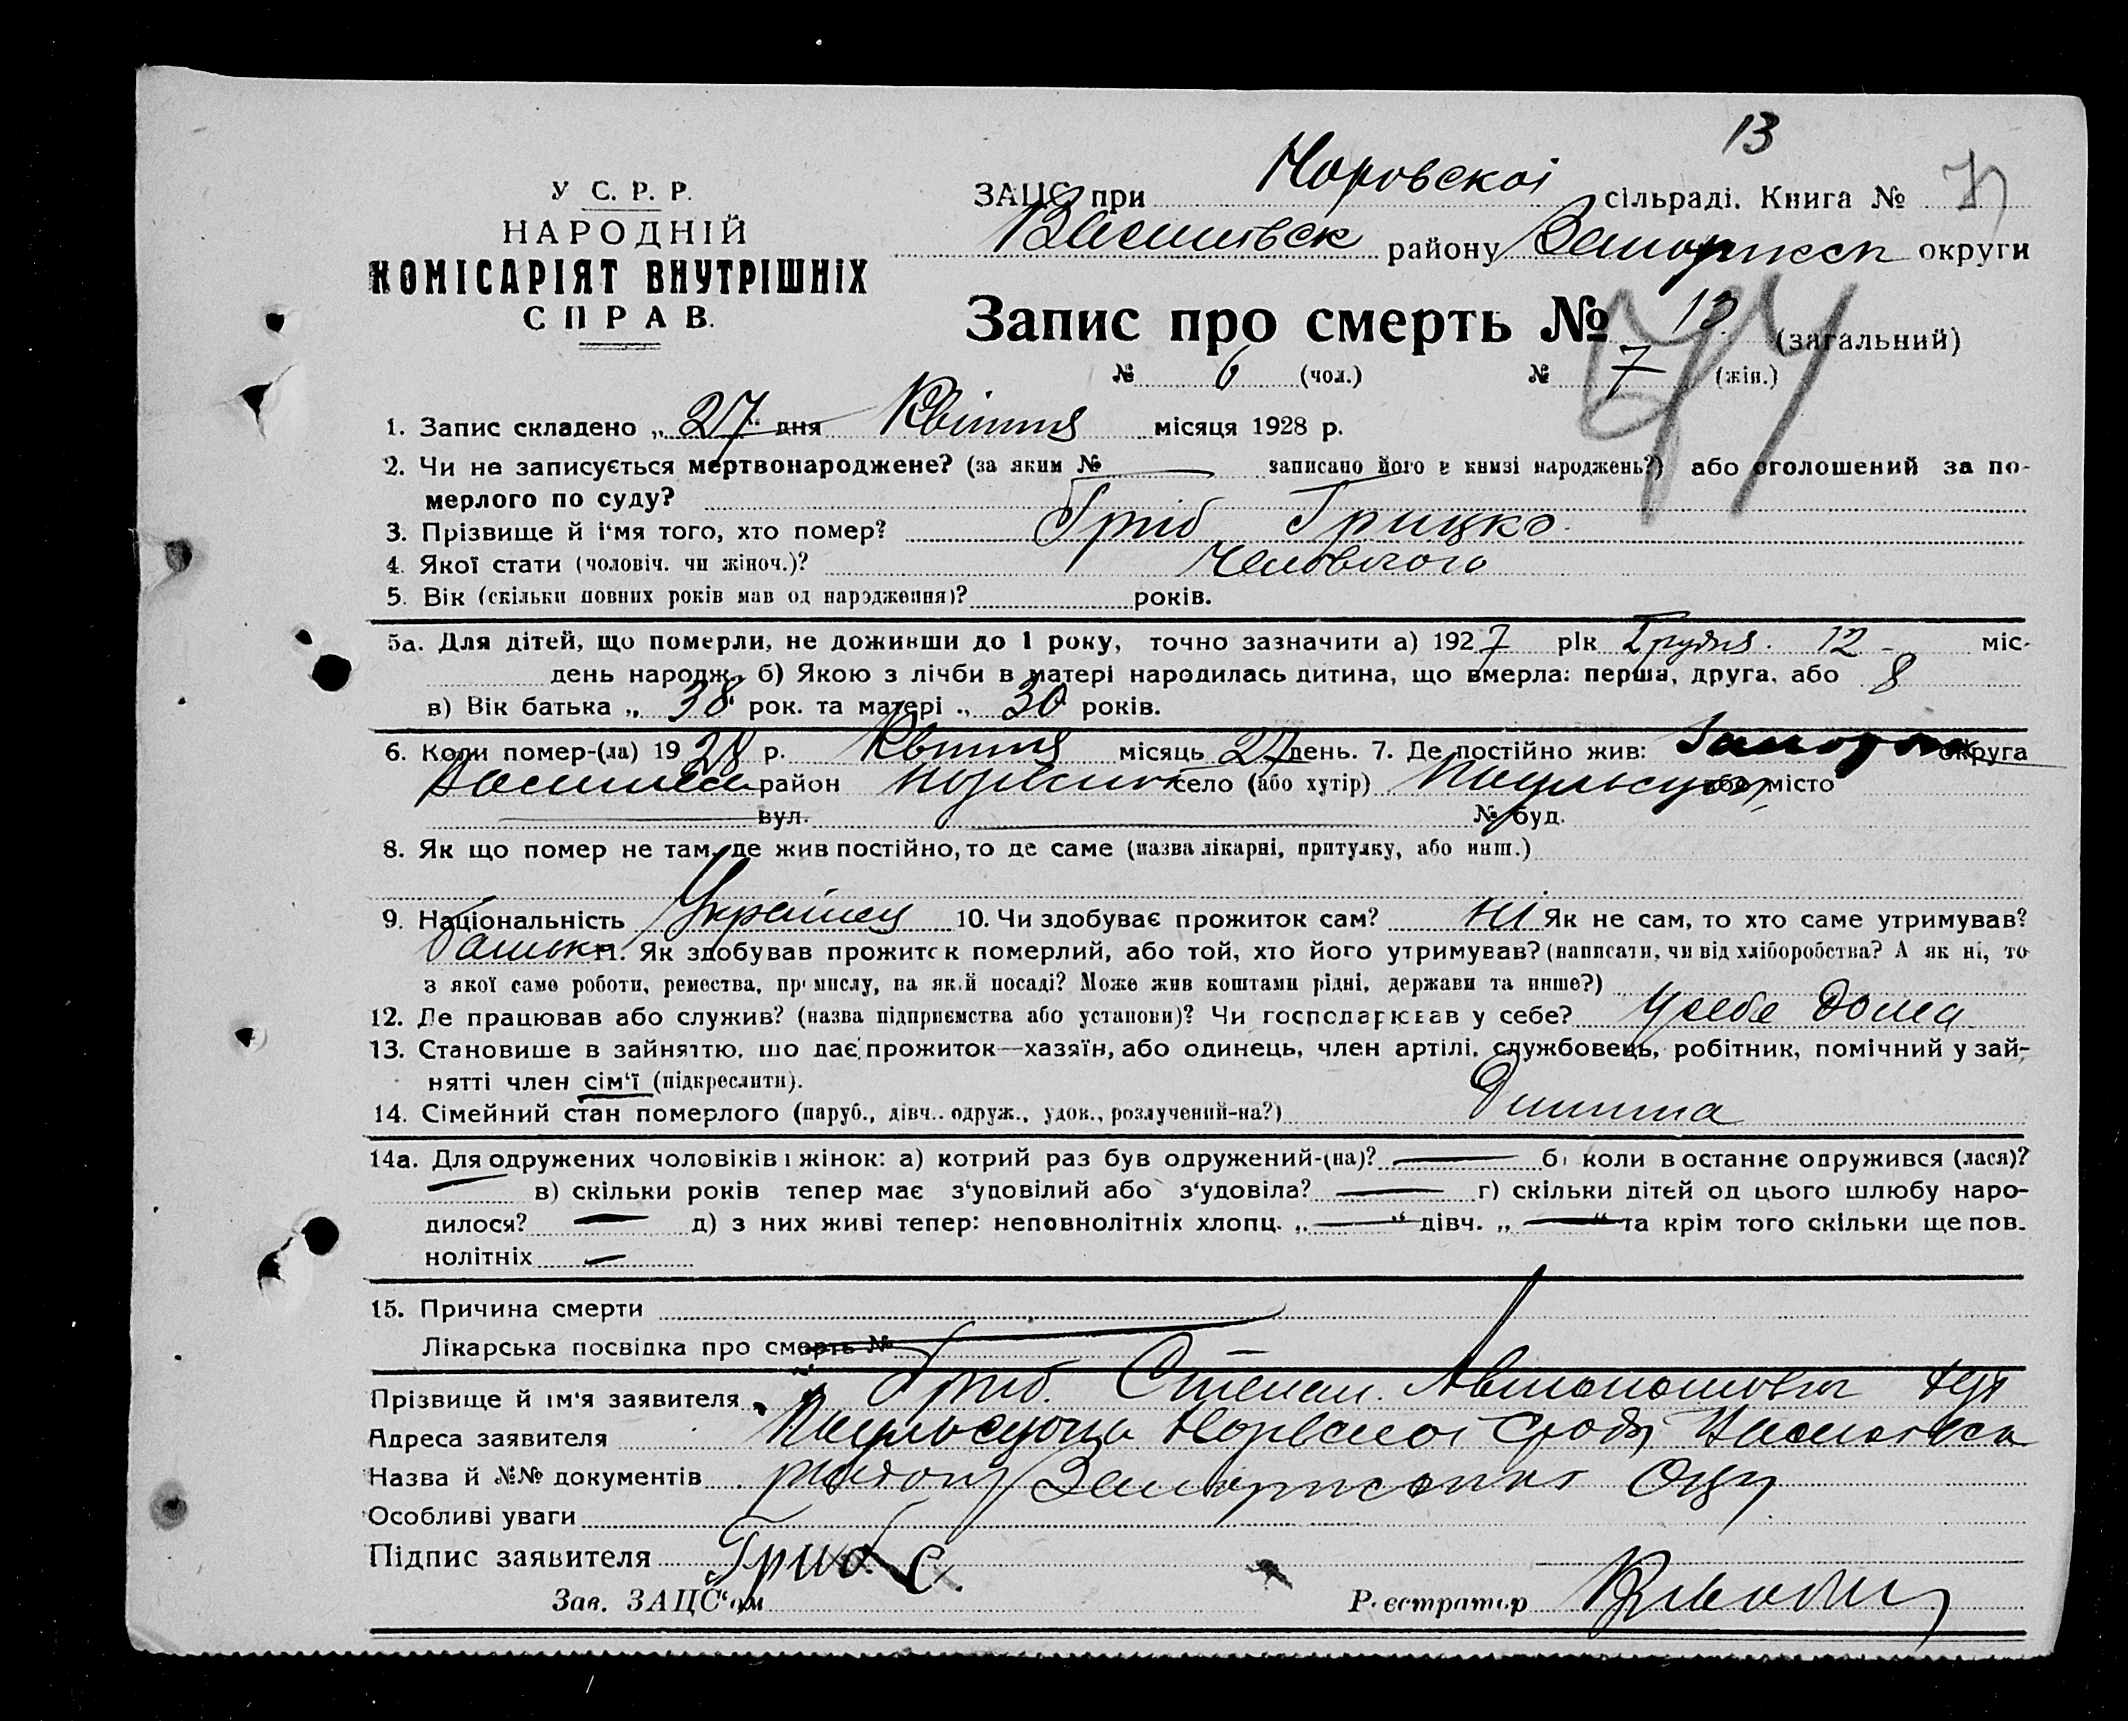 13
У С. Р. Р.
НАРОДНІЙ
КОМІСАРІЯТ ВНУТРІШНІХ
СПРАВ.
ЗАЦС при сільраді. Книга №
району округи
Запис про смерть № 13 (загальний)
№ 6 (чол.) № 7 (жін.)
1. Запис складено „ 27 " дня Квітня місяця 1928 р.
2. Чи не записується мертвонароджене? (за яким № записано його в книзі народжень?) або оголошений за по-
мерлого по суду?
3. Прізвище й і'мя того, хто помер? Гриб Грицко
4. Якої стати (чоловіч. чи жіноч.)?
5. Вік (скільки повних років мав од народження)? років.
5а. Для дітей, що померли, не доживши до 1 року, точно зазначити а) 1927 рік Грудня. 12 міс-
день народж. б) Якою з лічби в матері народилась дитина, що вмерла: перша, друга, або 8
в) Вік батька „ 38 " рок. та матері „ 30 років.
6. Коли помер-(ла) 1928 р. Квітня місяць 27 день. 7. Де постійно жив: округа
район село (або хутір) або місто
вул. № буд.
8. Як що помер не там, де жив постійно, то де саме (назва лікарні, притулку, або инш.)
9. Національність Українец 10. Чи здобуває прожиток сам? Ні Як не сам, то хто саме утримував?
Батьки. Як здобував прожиток померлий, або той, хто його утримував? (написати, чи від хліборобства? А як ні, то
з якої саме роботи, ремества, промислу, на якій посаді? Може жив коштами рідні, держави та инше?)
12. Де працював або служив? (назва підприємства або установи)? Чи господарював у себе? У себе дома
13. Становише в зайняттю, що дає прожиток—хазяїн, або одинець, член артілі, службовець, робітник, помічний у зай-
нятті член сім'ї (підкреслити).
14. Сімейний стан померлого (паруб., дівч.. одруж., удов., розлучений-на?) Дитина
14а. Для одружених чоловіків і жінок: а) котрий раз був одружений-(на)? б) коли в останнє одружився (лася)?
в) скільки років тепер має з'удовілий або з'удовіла? г) скільки дітей од цього шлюбу наро-
дилося? д) з них живі тепер: неповнолітніх хлопц. „ " дівч. „ " та крім того скільки ще пов-
нолітніх
15. Причина смерти
Лікарська посвідка про смерть №
Прізвище й ім'я заявителя Гриб. Степан.
Адреса заявителя
Назва й №№ документів
Особливі уваги
Підпис заявителя Гриб С.
Зав. ЗАЦС'ом Реєстратор